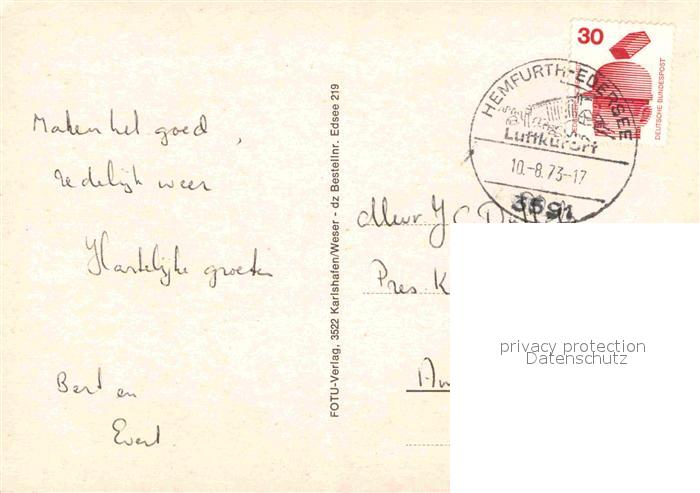 Maken het goed,
redelijk weer
Hartelijke groeten
Bert en
Evert.
FOTU-Verlag, 3522 Karlshafen/Weser - dz Bestellnr. Edsee 219
30
DEUTSCHE BUNDESPOST
HEMFURTH-EDERSEE
Luftkurort
10.-8.73-17
3591
Mevr J C
Pres. K
privacy protection
Datenschutz